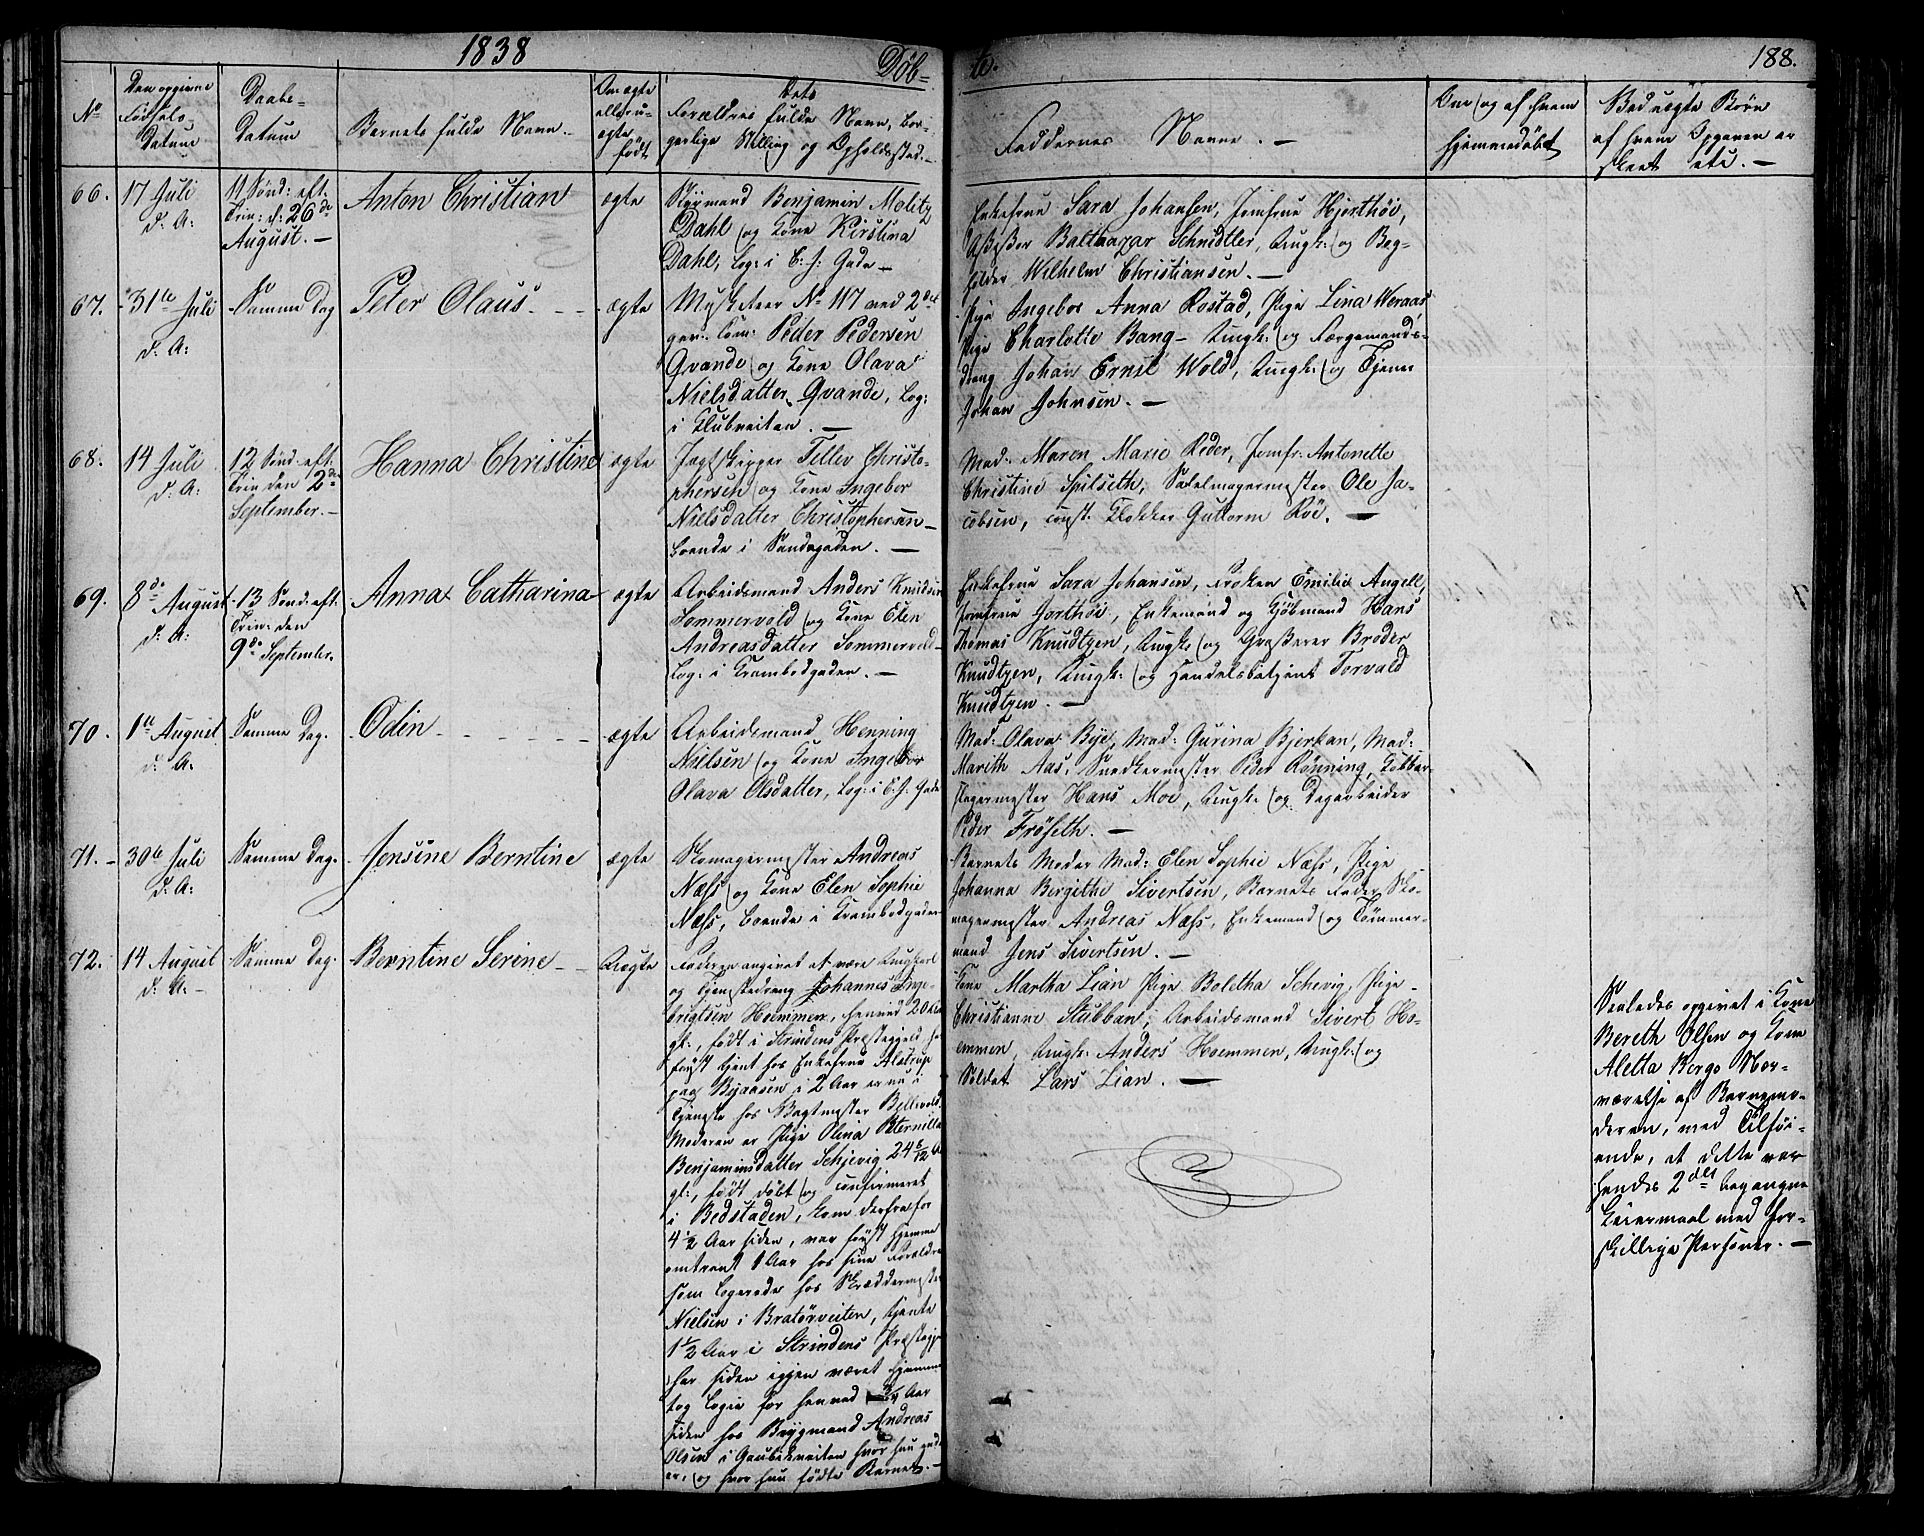 1838
Döb-
te.
188.
No
Den opgivne
Födsels-
Datum
Daabs-
Datum
Barnets fulde Navn.
Om ægte
eller u-
ægte
födt
Dets
Forældres fulde Navn, bor-
gerlige Stilling og Opholdssted.
Faddernes Navne. —
Om og af hvem
hjemmedöbt
Ved uægte Börn
af hvem Opgaven er
skeet etc. —
66.
17 Juli
d: A:
11 Sönd: eft.
Trin: d: 26de
August. —
Anton Christian
ægte
Benjamin Molitz
Dahl og Kone Kirstina
Dahl, log: i E: J: Gade —
Enkefrue Sara Johansen, Jomfrue Hjorthöi,
Assesser Balthazar Schnidtler, Ungk: og Bog-
holder Wilhelm Christiansen. —
67.
31te Juli
d: A:
Samme Dag
Peter Olaus. - -
ægte
Musketeer No 117 ved 2det
gev: Kom: Peder Pedersen
Qvande og Kone Olava
Nielsdatter Qvande, log:
i Klubveiten. —
Pige Ingebor Anna Rostad, Pige Lina Weraas,
Pige Charlotte Bang — Ungk: og Færgemands-
dreng Johan Ernst Wold, Ungk: og Tjener
Johan Johnsen. —
68.
14 Juli
d: A:
12 Sönd: eft:
Trin den 2den
September. —
Hanna Christine
ægte
Jægtskipper Tellev Christo-
phersen og Kone Ingebor
Nielsdatter Christophersen —
boende i Sandgaden. —
Mad: Maren Marie Reder, Jomfr: Antonette
Christine Spilseth, Sadelmagermester Ole Ja-
cobsen, const: Klokker Guttorm Röe. —
69.
8de August
d: A:
13 Sönd: eft:
Trin: den
9de September.
Anna Catharina
ægte
Arbeidsmand Anders Knudsen
Sommervold og Kone Elen
Andreasdatter Sommervold
log: i Krambodgaden. —
Enkefrue Sara Johansen, Fröken Emilie Angell,
Jomfrue Jorthöi, Enkemand og Kjöbmand Hans
Thomas Knudtzen, Ungk: og Grosserer Broder
Knudtzen, Ungk: og Handelsbetjent Torvald
Knudtzen. —
70.
1te August
d: A:
Samme Dag.
Odin - - - - - -
ægte
Arbeidsmand Henning
Nielsen og Kone Ingebor
Olava Olsdatter, log: i E: J: Gade
Mad: Olava Bye, Mad: Gurina Bjerkan, Mad:
Marith Aas, Snedkermester Peder Rönning, Kobber-
slagermester Hans Moe, Ungk: og Dagarbeider
Peder Fröseth. —
71.
30te Juli
d: A:
Samme Dag.
Jensine Berntine
ægte
Skomagermester Andreas
Næss og Kone Elen Sophie
Næss, boende i Krambodgaden
Barnets Moder Mad: Elen Sophie Næss, Pige
Johanna Bergithe Sivertsen, Barnets Fader Sko-
magermester Andreas Næss, Enkemand og Tömmer-
mand Jens Sivertsen. —
72.
14 August
d: A: —
Samme Dag.
Berntine Serine - -
Uægte
Faderen angivet at være Ungkarl
og Tjenstedreng Johannes Inge-
brigtsen Hoemmen, henved 20 Aar
gl:, födt i Strindens Præstegjeld har
först tjent hos Enkefrue Alstrup
paa Byaasen i 2 Aar er nu i
Tjeneste hos Vagtmester Bellevold.
Moderen er Pige Olina Peternille
Benjaminsdatter Schjevig 24 6/12 Aar
gl:, födt döbt og confirmeret
i Bedstaden, kom derfra for
4 1/2 Aar siden, var först hjemme
omtrent 1 Aar hos sine Forældre
som logerede hos Skræddermester
Nielsen i Bratörveiten, tjente
1 1/2 Aar i Strindens Præstegj:
har siden igjen været hjemme
tog Logie for henved 3/4 Aar
siden hos Brygmand Andreas
Olsen i Gaubekveiten hvor hun endnu
er, og hvor hun födte Barnet. —
Kone Martha Lian Pige Beletha Schevig, Pige
Christianne Stubban, Arbeidsmand Sivert Ho-
emmen, Ungk: Anders Hoemmen, Ungk: og
Soldat Lars Lian. —
Saaledes opgivet i Kone
Bereth Olsen og Kone
Aletta Bergs Nær-
værelse af Barnemo-
deren, med Tilföi-
ende, at dette var
hendes 2det begangne
Leiermaal med for-
skillige Personer. —